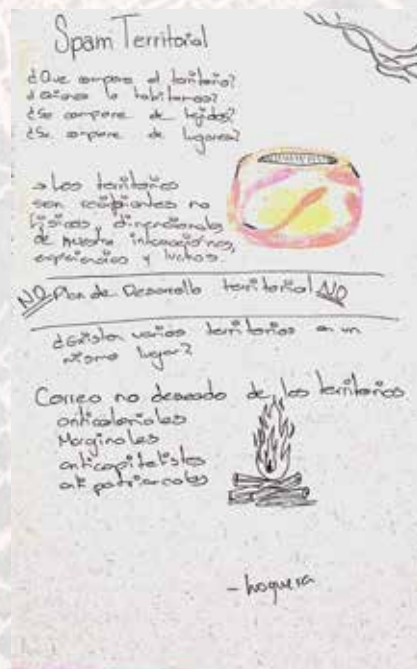 Spam Territorial
¿Que compone el territorio?
¿Quienes lo habitamos?
¿Se compone de tejidos?
¿Se compone de lugares?
→ Los territorios
son recipientes no
físicos, dimensionales
de nuestra interacciones,
experiencias y luchas.
NO Plan de Desarrollo territorial NO
¿Existen varios territorios en un
mismo lugar?
Correo no deseado de los territorios
anticoloniales
Marginales
anticapitalistas
antipatriarcales
- hoguera